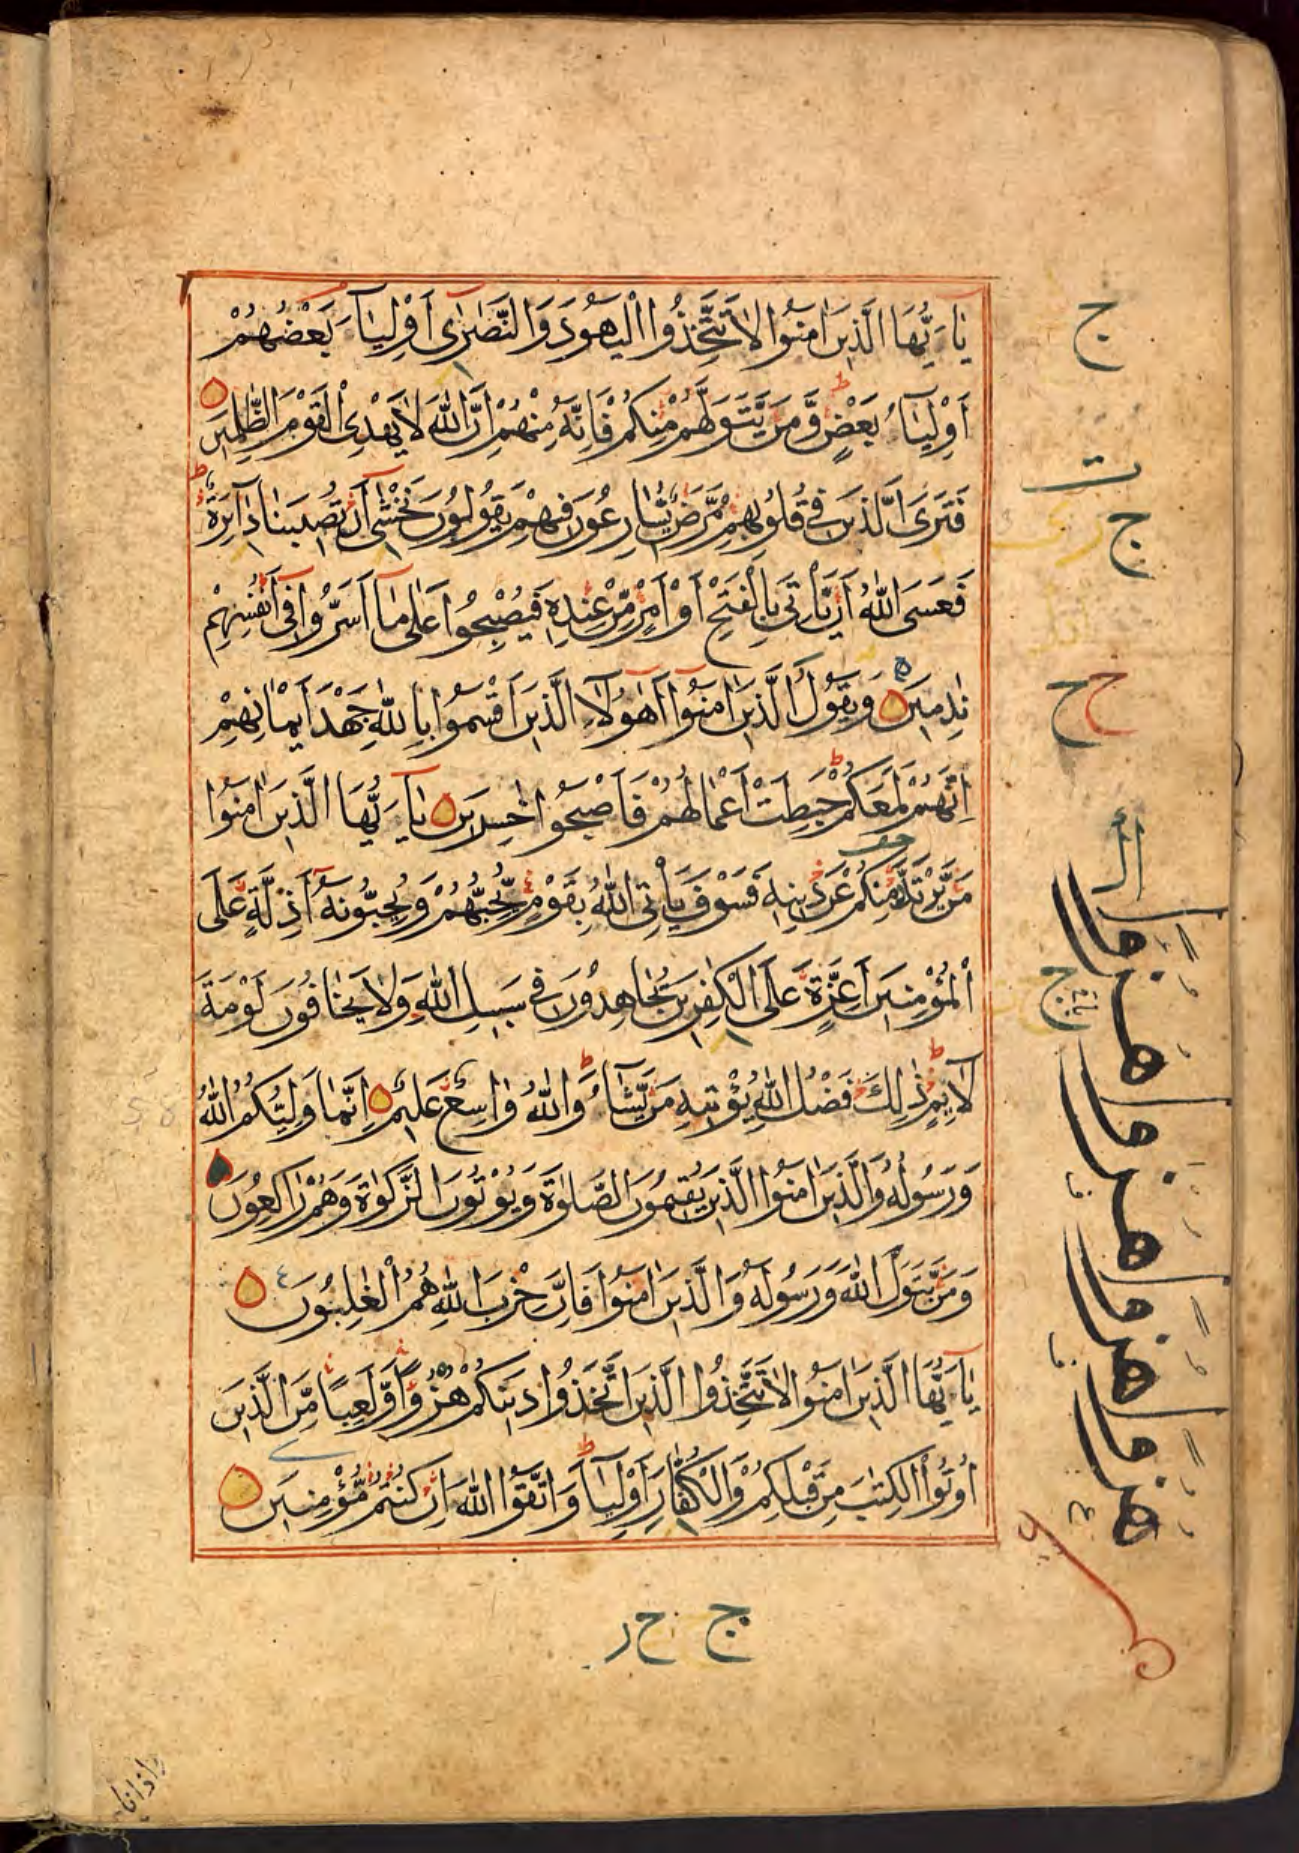 يَاۤ يُّهَا الَّذِيْنَ اٰمَنُوْا لَا تَتَّخِذُوا الْيَهُوْدَ وَالنَّصٰرٰۤى اَوْلِيَآءَ بَعْضُهُمْ
اَوْلِيَآءُ بَعْضٍ وَّمَنْ يَّتَوَلَّهُمْ مِّنْكُمْ فَاِنَّهٗ مِنْهُمْ اِنَّ اللّٰهَ لَا يَهْدِى الْقَوْمَ الظّٰلِمِيْنَ
فَتَرَى الَّذِيْنَ فِيْ قُلُوْبِهِمْ مَّرَضٌ يُّسَارِعُوْنَ فِيْهِمْ يَقُوْلُوْنَ نَخْشٰۤى اَنْ تُصِيْبَنَا دَآئِرَةٌ
فَعَسَى اللّٰهُ اَنْ يَّاْتِيَ بِالْفَتْحِ اَوْ اَمْرٍ مِّنْ عِنْدِهٖ فَيُصْبِحُوْا عَلٰى مَاۤ اَسَرُّوْا فِيْۤ اَنْفُسِهِمْ
نٰدِمِيْنَ وَيَقُوْلُ الَّذِيْنَ اٰمَنُوْۤا اَهٰۤؤُلَآءِ الَّذِيْنَ اَقْسَمُوْا بِاللّٰهِ جَهْدَ اَيْمَانِهِمْ
اِنَّهُمْ لَمَعَكُمْ حَبِطَتْ اَعْمَالُهُمْ فَاَصْبَحُوْا خٰسِرِيْنَ يَاۤ يُّهَا الَّذِيْنَ اٰمَنُوْا
مَنْ يَّرْتَدَّ مِنْكُمْ عَنْ دِيْنِهٖ فَسَوْفَ يَاْتِى اللّٰهُ بِقَوْمٍ يُّحِبُّهُمْ وَيُحِبُّوْنَهٗۤ اَذِلَّةٍ عَلَى
الْمُؤْمِنِيْنَ اَعِزَّةٍ عَلَى الْكٰفِرِيْنَ يُجَاهِدُوْنَ فِيْ سَبِيْلِ اللّٰهِ وَلَا يَخَافُوْنَ لَوْمَةَ
لَآئِمٍ ذٰلِكَ فَضْلُ اللّٰهِ يُؤْتِيْهِ مَنْ يَّشَآءُ وَاللّٰهُ وَاسِعٌ عَلِيْمٌ اِنَّمَا وَلِيُّكُمُ اللّٰهُ
وَرَسُوْلُهٗ وَالَّذِيْنَ اٰمَنُوا الَّذِيْنَ يُقِيْمُوْنَ الصَّلٰوةَ وَيُؤْتُوْنَ الزَّكٰوةَ وَهُمْ رَاكِعُوْنَ
وَمَنْ يَّتَوَلَّ اللّٰهَ وَرَسُوْلَهٗ وَالَّذِيْنَ اٰمَنُوْا فَاِنَّ حِزْبَ اللّٰهِ هُمُ الْغٰلِبُوْنَ
يَاۤ يُّهَا الَّذِيْنَ اٰمَنُوْا لَا تَتَّخِذُوا الَّذِيْنَ اتَّخَذُوْا دِيْنَكُمْ هُزُوًا وَّلَعِبًا مِّنَ الَّذِيْنَ
اُوْتُوا الْكِتٰبَ مِنْ قَبْلِكُمْ وَالْكُفَّارَ اَوْلِيَآءَ وَاتَّقُوا اللّٰهَ اِنْ كُنْتُمْ مُّؤْمِنِيْنَ
ج
ج
ح ح
ج
هزوا
هزوا
هزوا
هزوا
ج ح ر
واذا نا